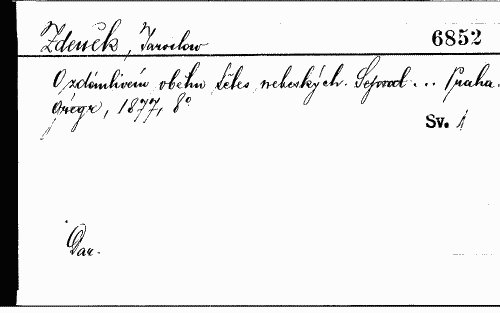 Zdeněk, Jaroslav 6852
O zdánlivém oběhu těles nebeských. Sepsal ... Praha.
Grégr, 1877, 8°
Sv. 1
Dar.